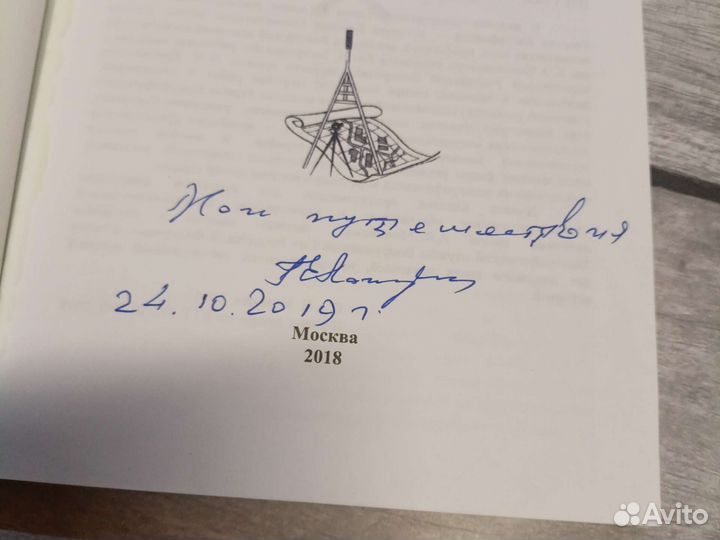 Мои путешествия
24.10.2019 г.
Москва
2018
Avito